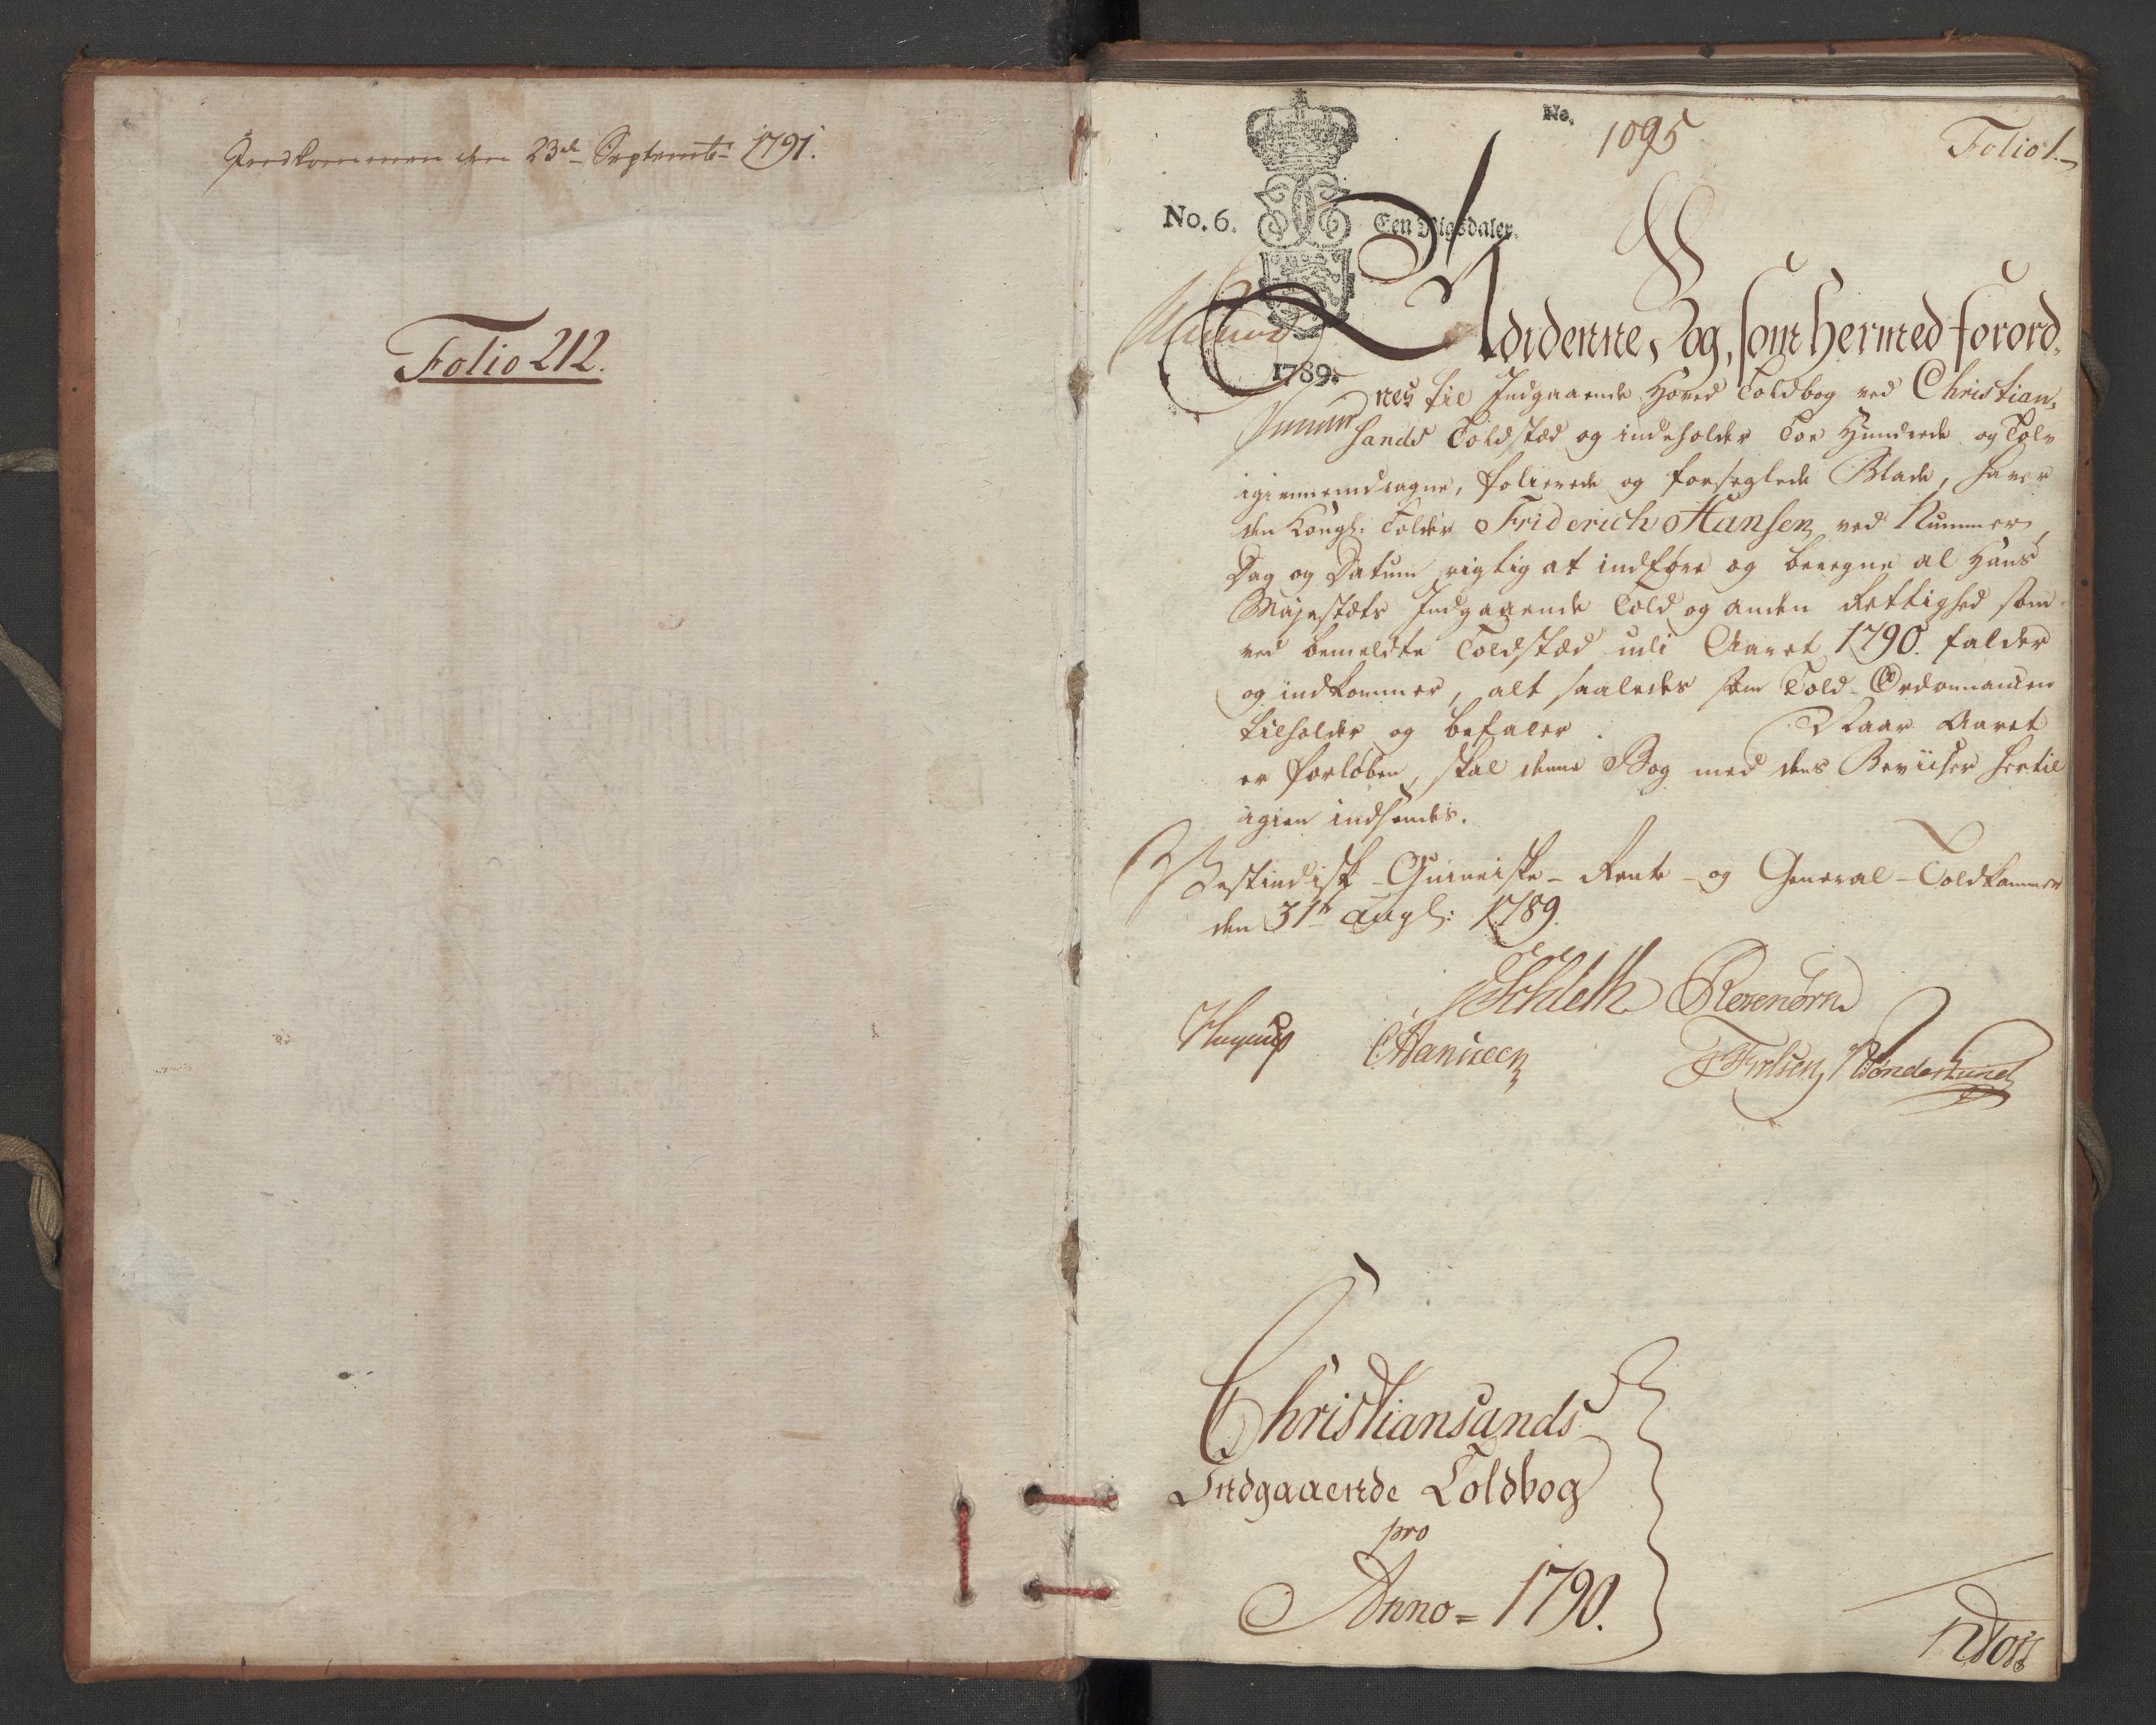 Indkommen den 23de Septembr 1791.
Folio 212.
No.
1095
Folio 1.
No. 6.
Een Rigsdaler.
1789.
Udi denne Bog, som hermed forord,
nes til Indgaaende Hoved Toldbog ved Christian,
sands Toldsted og indeholder Toe Hundrede og Tolv
igiennemdragne, folierede og forseglede Blade, haver
den Kongl: Tolder Friderich Hansen ved Nummer,
Dag og Datum rigtig at indføre og beregne al Hans
Majestæts Indgaaende Told og anden Rettighed som
ved bemeldte Toldsted udi Aaret 1790. falder
og indkommer, alt saaledes som Told-Ordonnancen
tilholder og befaler. Naar Aaret
er forløben, skal denne Bog med dens Beviiser hertil
igien indsendes.
Vestindisk-Guineiske-Rente-og General-Toldkammer
den 31te Augs: 1789.
Schleth Rosenørn
Hagerup
Christiansands
Indgaaende Toldbog
pro
Anno = 1790.